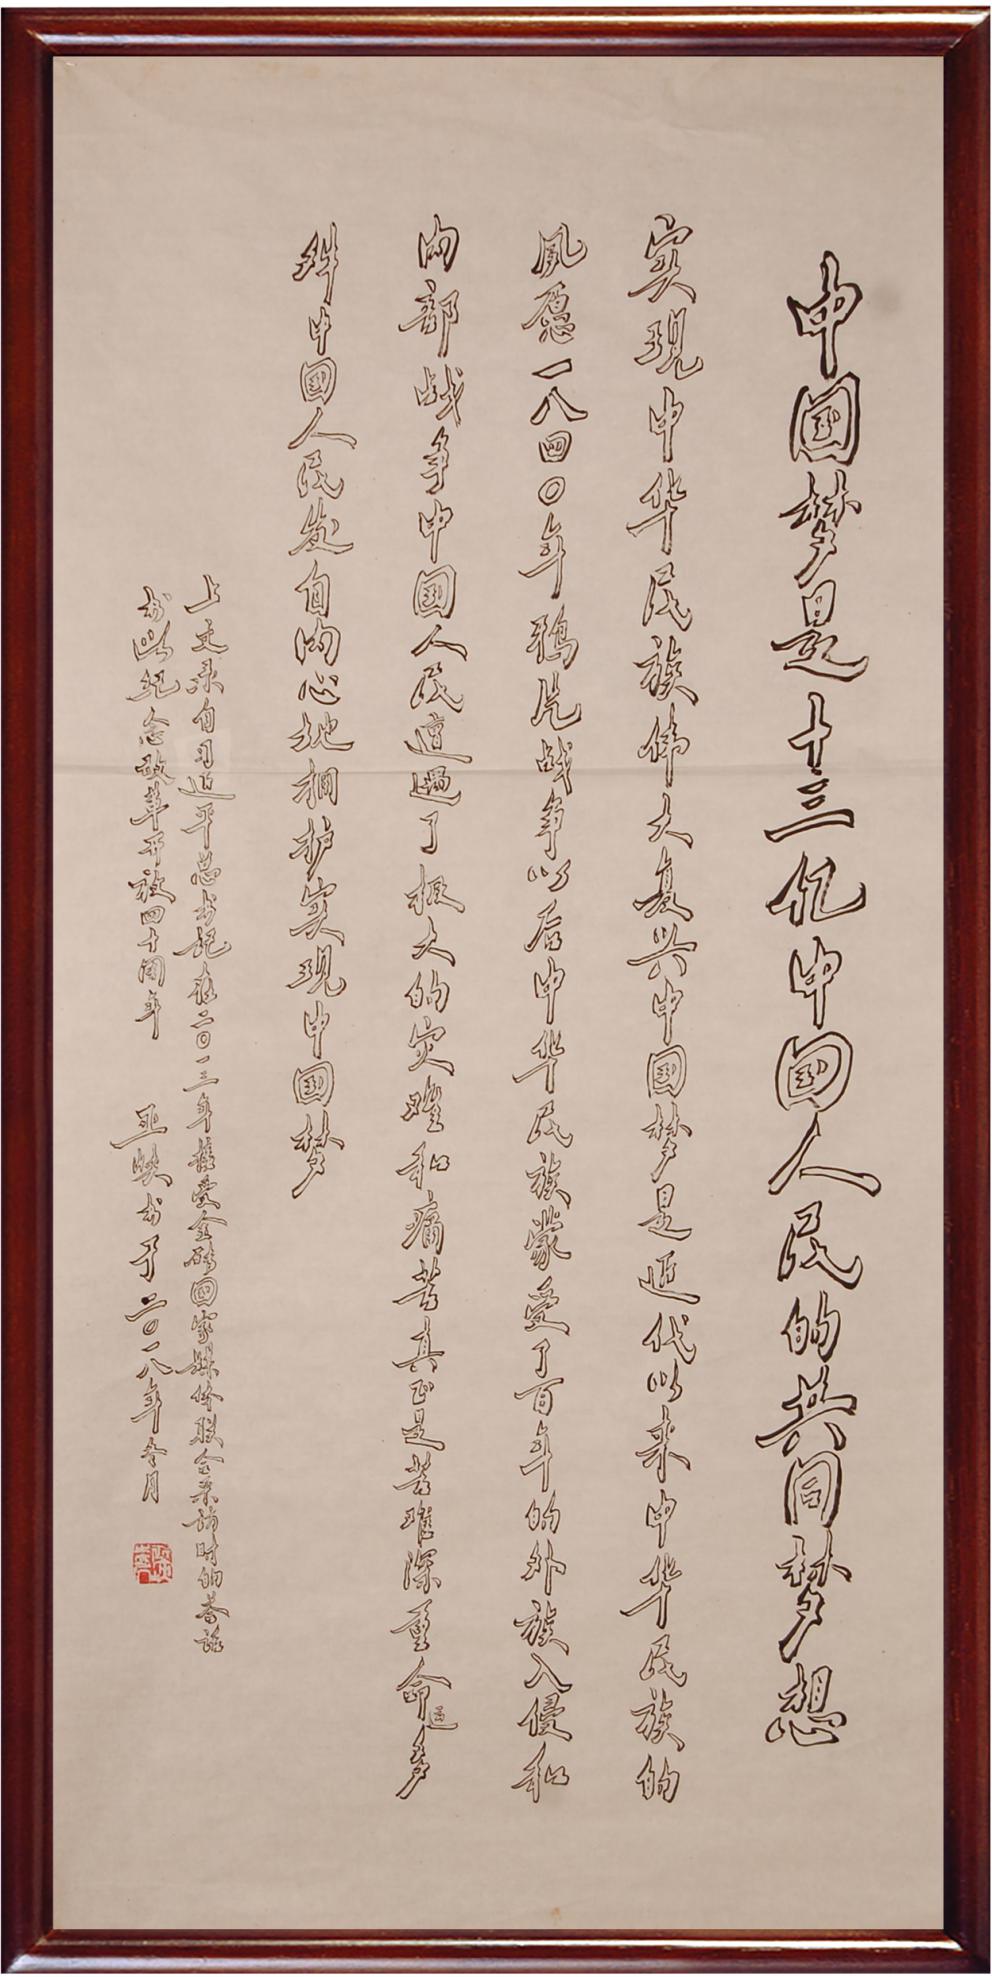 中国梦是十三亿中国人民的共同梦想
实现中华民族伟大复兴中国梦是近代以来中华民族的
夙愿一八四〇年鸦片战争以后中华民族蒙受了百年的外族入侵和
内部战争中国人民遭遇了极大的灾难和痛苦真正是苦难深重命运多
舛中国人民发自内心地拥护实现中国梦
上文录自习近平总书记在二〇一三年接受金砖国家媒体联合采访时的答话
书此纪念改革开放四十周年 亚映书于二〇一八年冬月